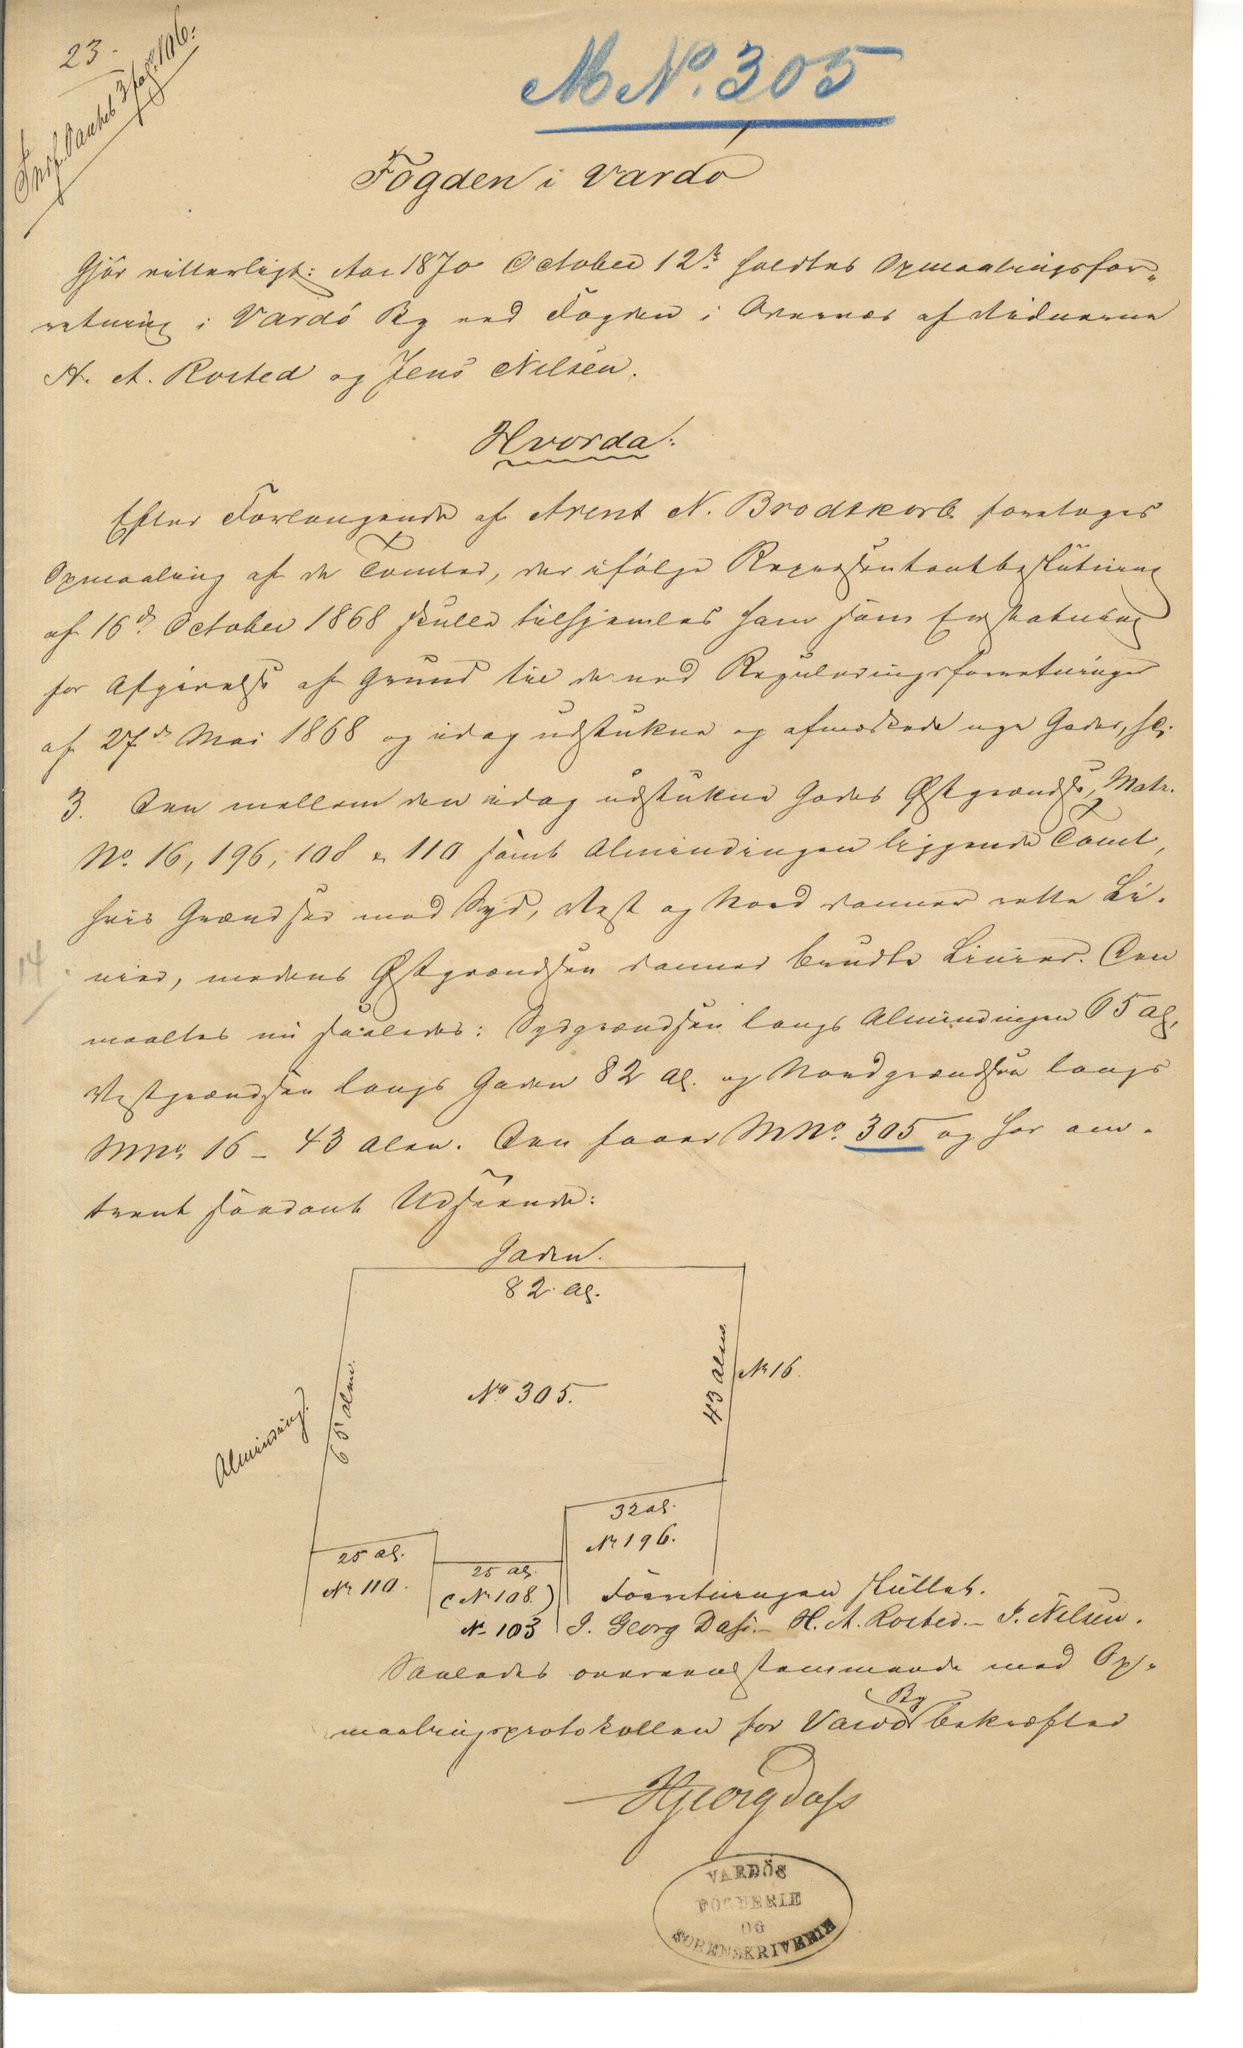 23.
M N°. 305
Fogden i Vardø
Gjør vitterligt: Aar 1870 October 12te holdtes Opmaalingsfor-
retning i Vardö By ved Fogden i Overvær af Vidnerne
H. A. Rosted og Jens Nilsen.
Hvorda:
Efter Forlangende af Arent N. Brodtkorb foretoges
Opmaaling af de Tomter, der ifølge Repræsentantbeslutning
af 16de October 1868 skulle tilhjemles ham som Erstatning
for Afgivelse af Grund til de ved Reguleringsforretninger
af 27de Mai 1868 og idag udstukne og afmærkede nye Gader, sc;
3. Den mellem den idag udstukne Gades Østgrændse, Matr.
No. 16, 196, 108 & 110 samt Almindingen liggende Tomt,
hvis Grændser mod Syd, Vest og Nord danner rette Li-
nier, medens Østgrændsen danner brudte Linier. Den
maaltes nu saaledes: Sydgrændsen langs Almindingen 65 al,
Vestgrændsen langs Gaden 82 al. og Nordgrændsen langs
MNo. 16 - 43 Alen. Den faaer MNo. 305 og har om-
trent saadant Udseende:
Gaden.
82 al.
65 Alen.
43 Alen.
No 16.
No 305.
Alminding.
32 al.
No 196.
25 al.
No 110.
25 al.
(No 108.)
No 103
Forretningen sluttet.
J. Georg Dass. - H. A. Rosted. - J. Nilsen.
Saaledes overeenstemmende med Op-
maalingsprotokollen for Vardö By bekræfter
HGeorgDass
VARDÖS
FOGDERIE
OG
SORENSKRIVERIE
14